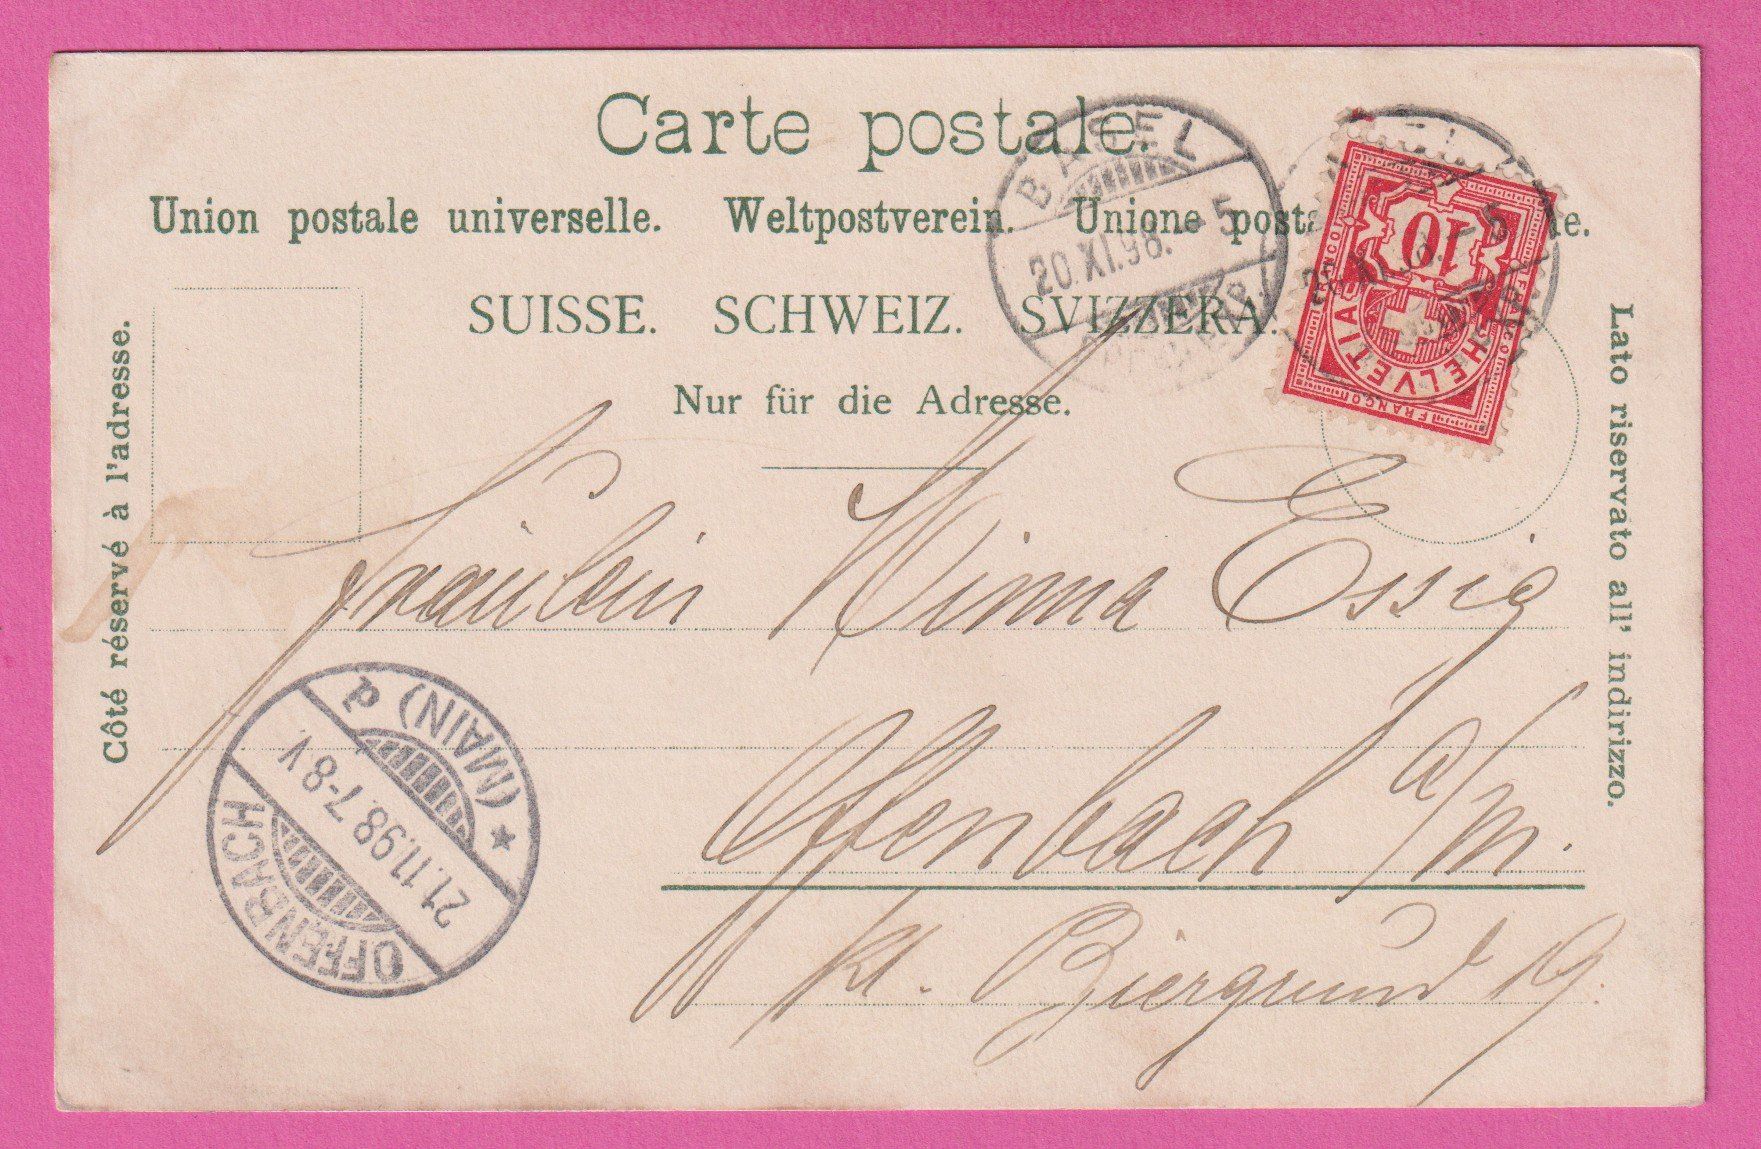 Carte postale.
Union postale universelle. Weltpostverein. Unione posta e.
SUISSE. SCHWEIZ. SVIZZERA.
Nur für die Adresse.
Côté réservé à l'adresse.
Lato riservato all' indirizzo.
BASEL
20.XI.98. - 5
10
HELVETIA
FRANCO
FRANCO
FRANCO
Fräulein Minna Essig
Offenbach a/M.
kl. Biergrund 19.
OFFENBACH
21.11.98.7-8 V.
* (MAIN) d